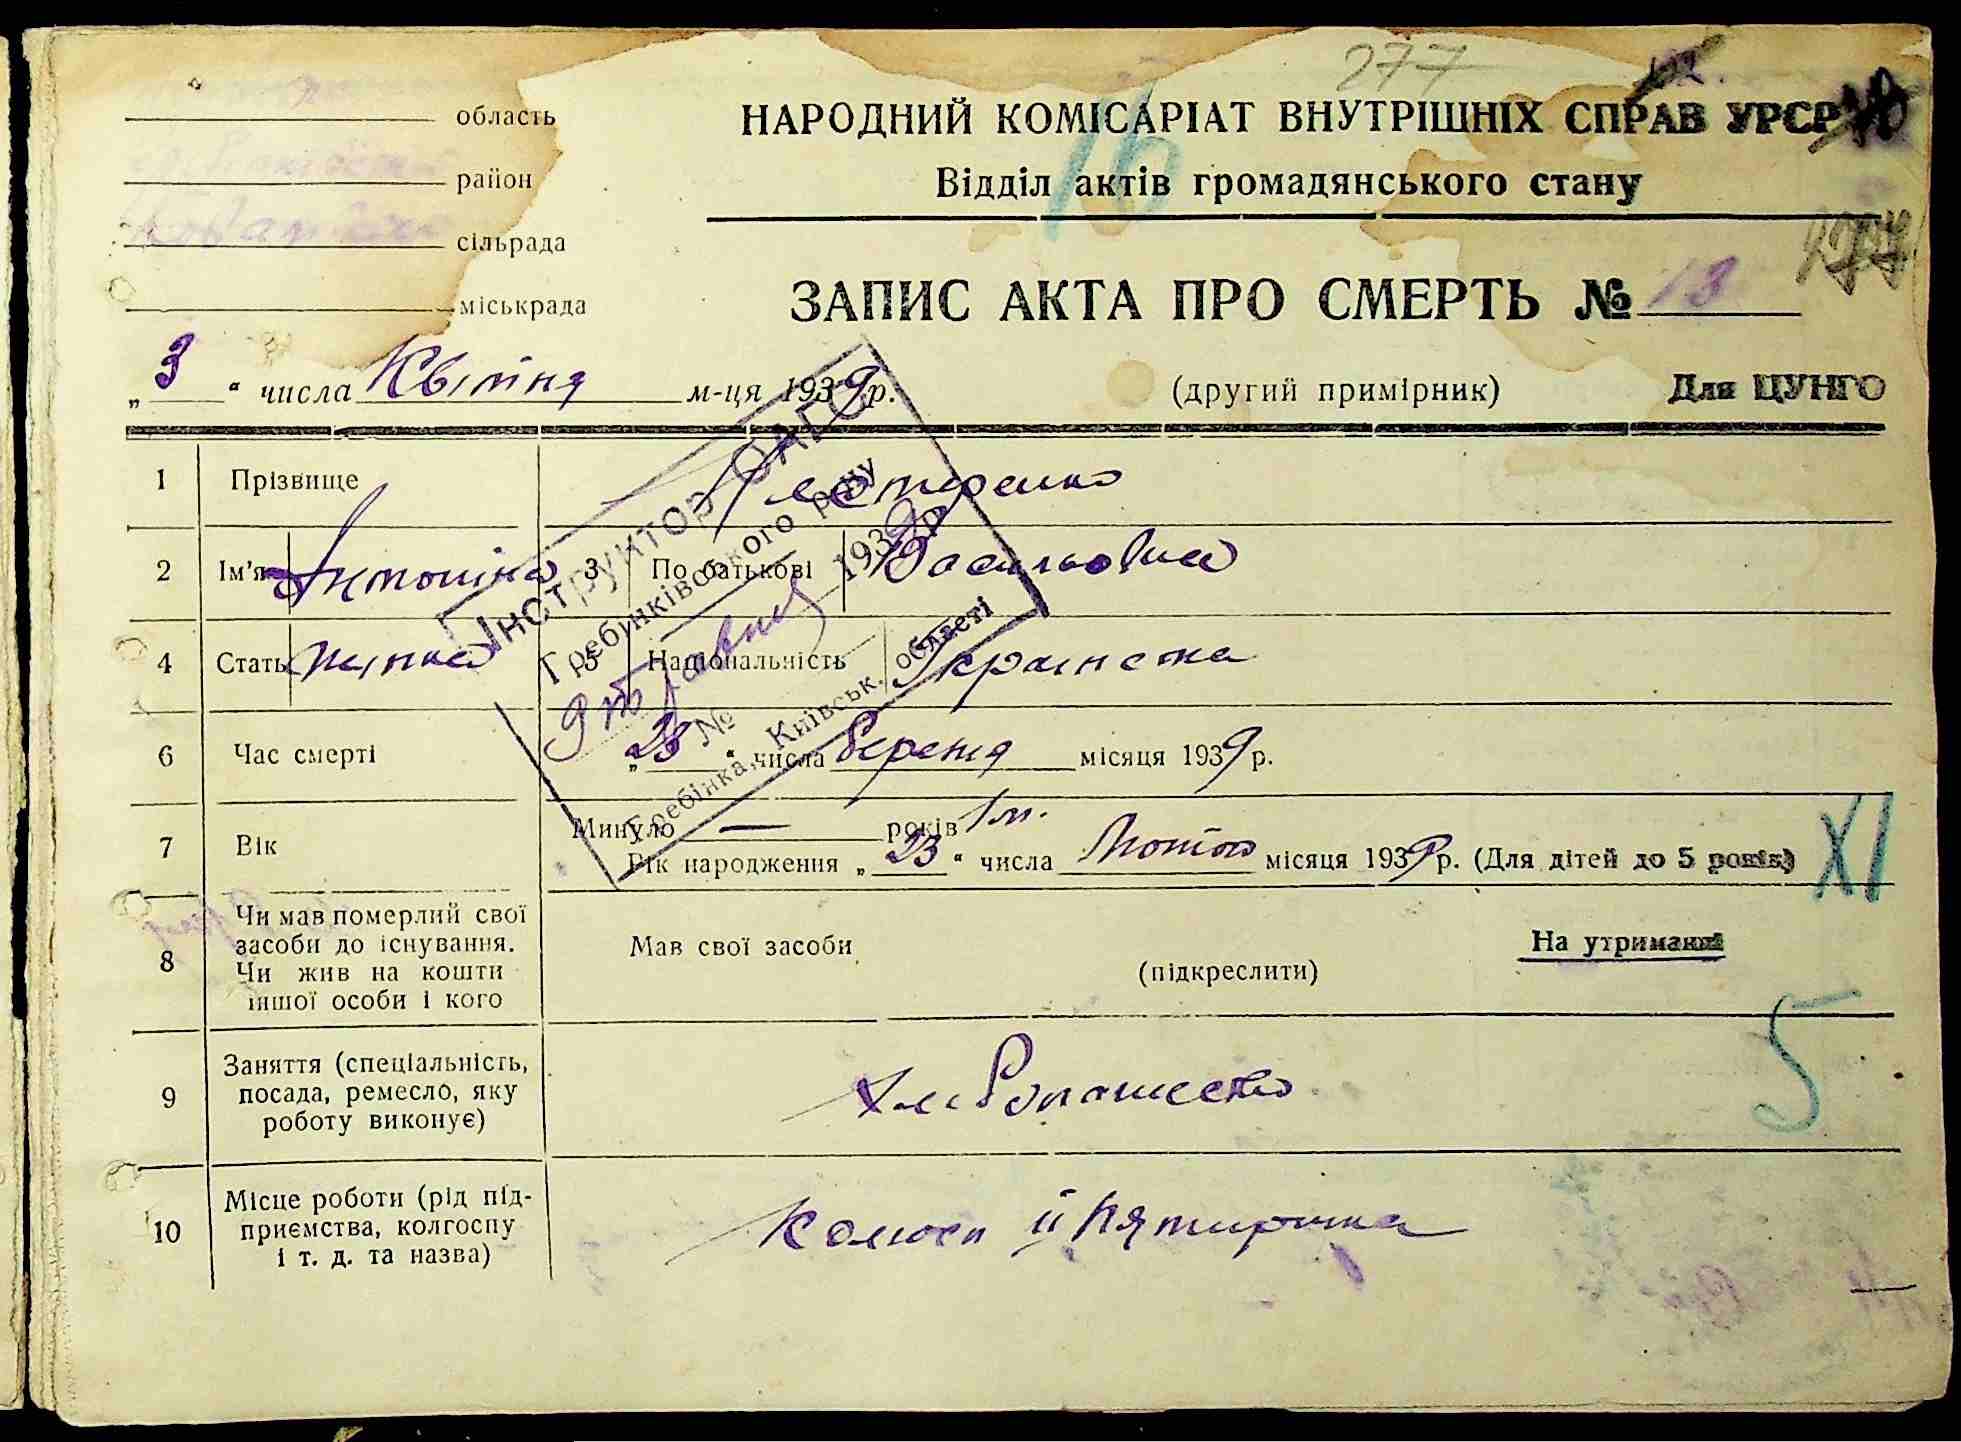 277
область
НАРОДНИЙ КОМІСАРІАТ ВНУТРІШНІХ СПРАВ УРСР
район
Відділ актів громадянського стану
16
сільрада
міськрада
ЗАПИС АКТА ПРО СМЕРТЬ № 13
„3“ числа Квітня м-ця 1939 р.
(другий примірник) Для ЦУНГО
Інструктор ОАГС
Гребінківського р-ну
1939 р
№
Гребінка, Київськ. області
1 Прізвище
2 Ім'я Антоніна 3 По батькові Васильовна
4 Стать жінка 5 Національність Українка
6 Час смерті „28“ числа березня місяця 1939 р.
7 Вік Минуло — років 1 м.
Рік народження „23“ числа Лютого місяця 1939 р. (Для дітей до 5 років)
XI
8 Чи мав померлий свої засоби до існування. Чи жив на кошти іншої особи і кого
Мав свої засоби (підкреслити) На утриманні
5
9 Заняття (спеціальність, посада, ремесло, яку роботу виконує)
Хліборобство
10 Місце роботи (рід підприємства, колгоспу і т. д. та назва)
Колгосп ІІ Пятирічка